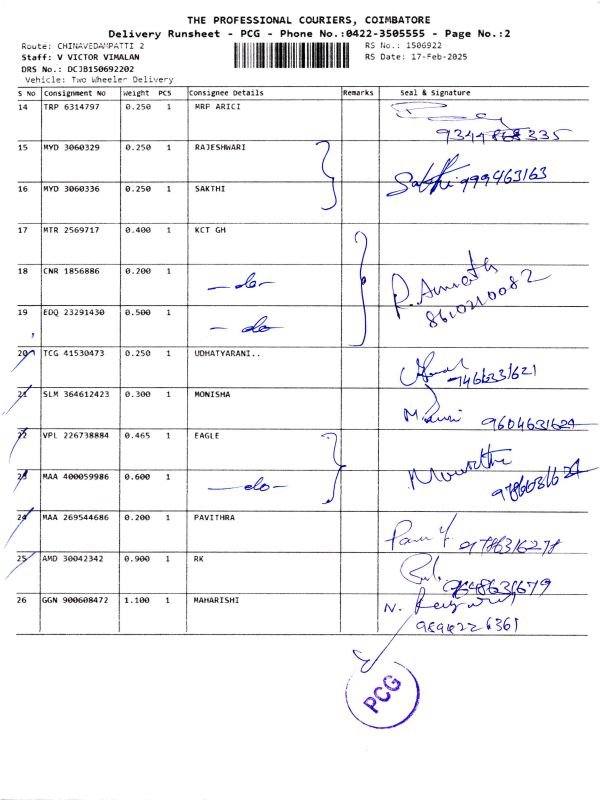 THE PROFESSIONAL COURIERS, COIMBATORE
Delivery Runsheet - PCG - Phone No.:0422-3505555 - Page No.:2
Route: CHINAVEDAMPATTI 2 RS No.: 1506922
Staff: V VICTOR VIMALAN RS Date: 17-Feb-2025
DRS No.: DCJB150692202
Vehicle: Two Wheeler Delivery
S No Consignment No Weight PCS Consignee Details Remarks Seal & Signature
14 TRP 6314797 0.250 1 MRP ARICI
15 MYD 3060329 0.250 1 RAJESHWARI
16 MYD 3060336 0.250 1 SAKTHI Sakthi 999463163
17 MTR 2569717 0.400 1 KCT GH
18 CNR 1856886 0.200 1 -do-
8610210082
19 EDQ 23291430 0.500 1 -do-
20 TCG 41530473 0.250 1 UDHATYARANI..
21 SLM 364612423 0.300 1 MONISHA
22 VPL 226738884 0.465 1 EAGLE
23 MAA 400059986 0.600 1 -do-
24 MAA 269544686 0.200 1 PAVITHRA
25 AMD 30042342 0.900 1 RK
26 GGN 900608472 1.100 1 MAHARISHI
PCG